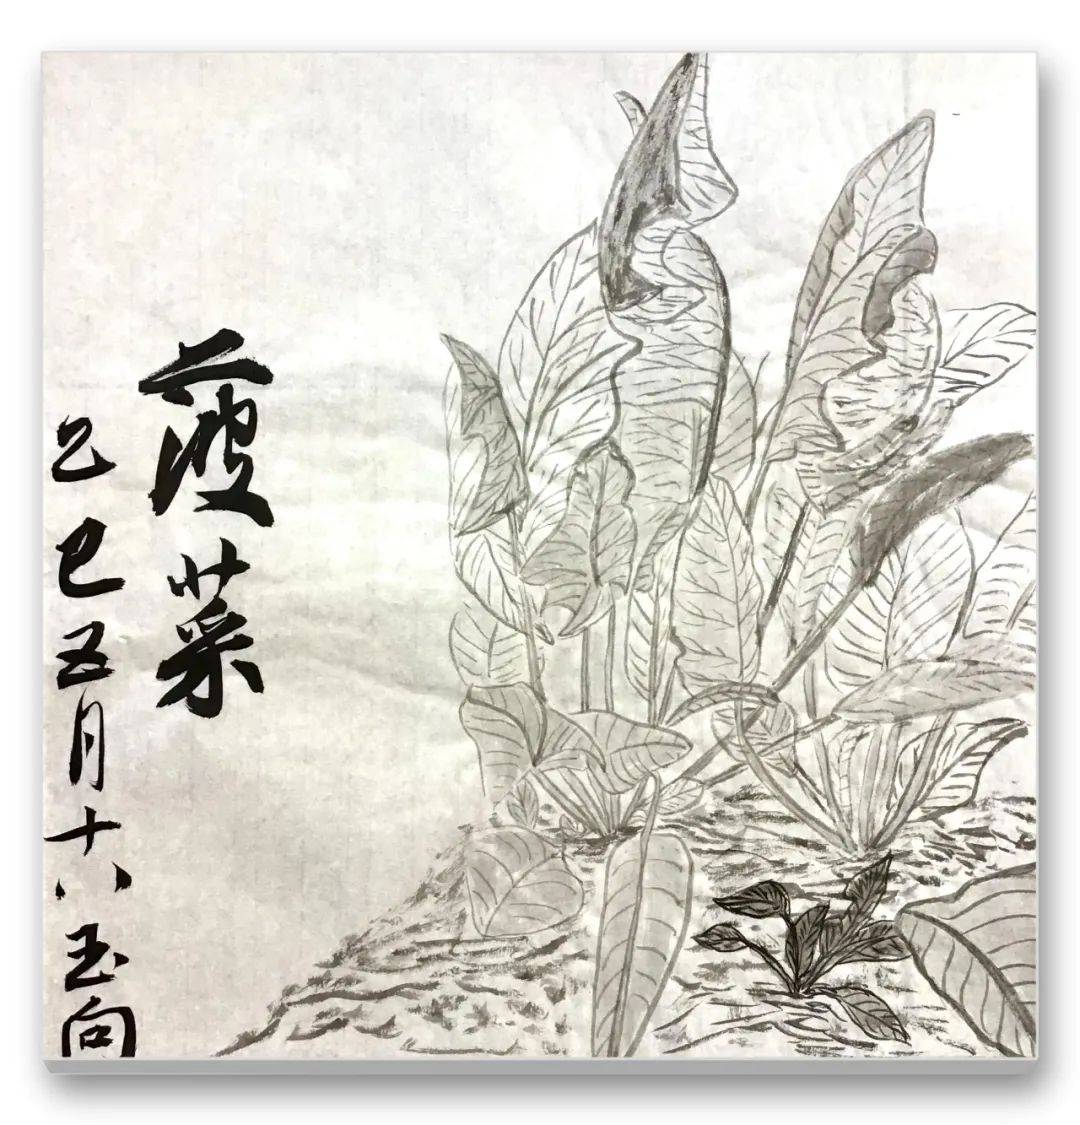 菠菜
乙巳五月十八玉向